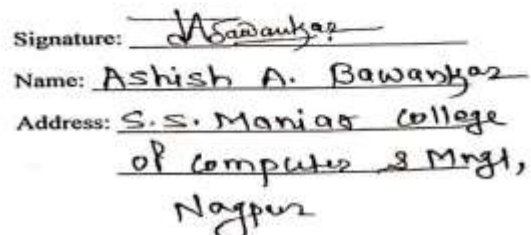 Signature: Bawankar
Name: Ashish A. Bawankar
Address: S.S. Maniar College
of Computer & Mngt,
Nagpur